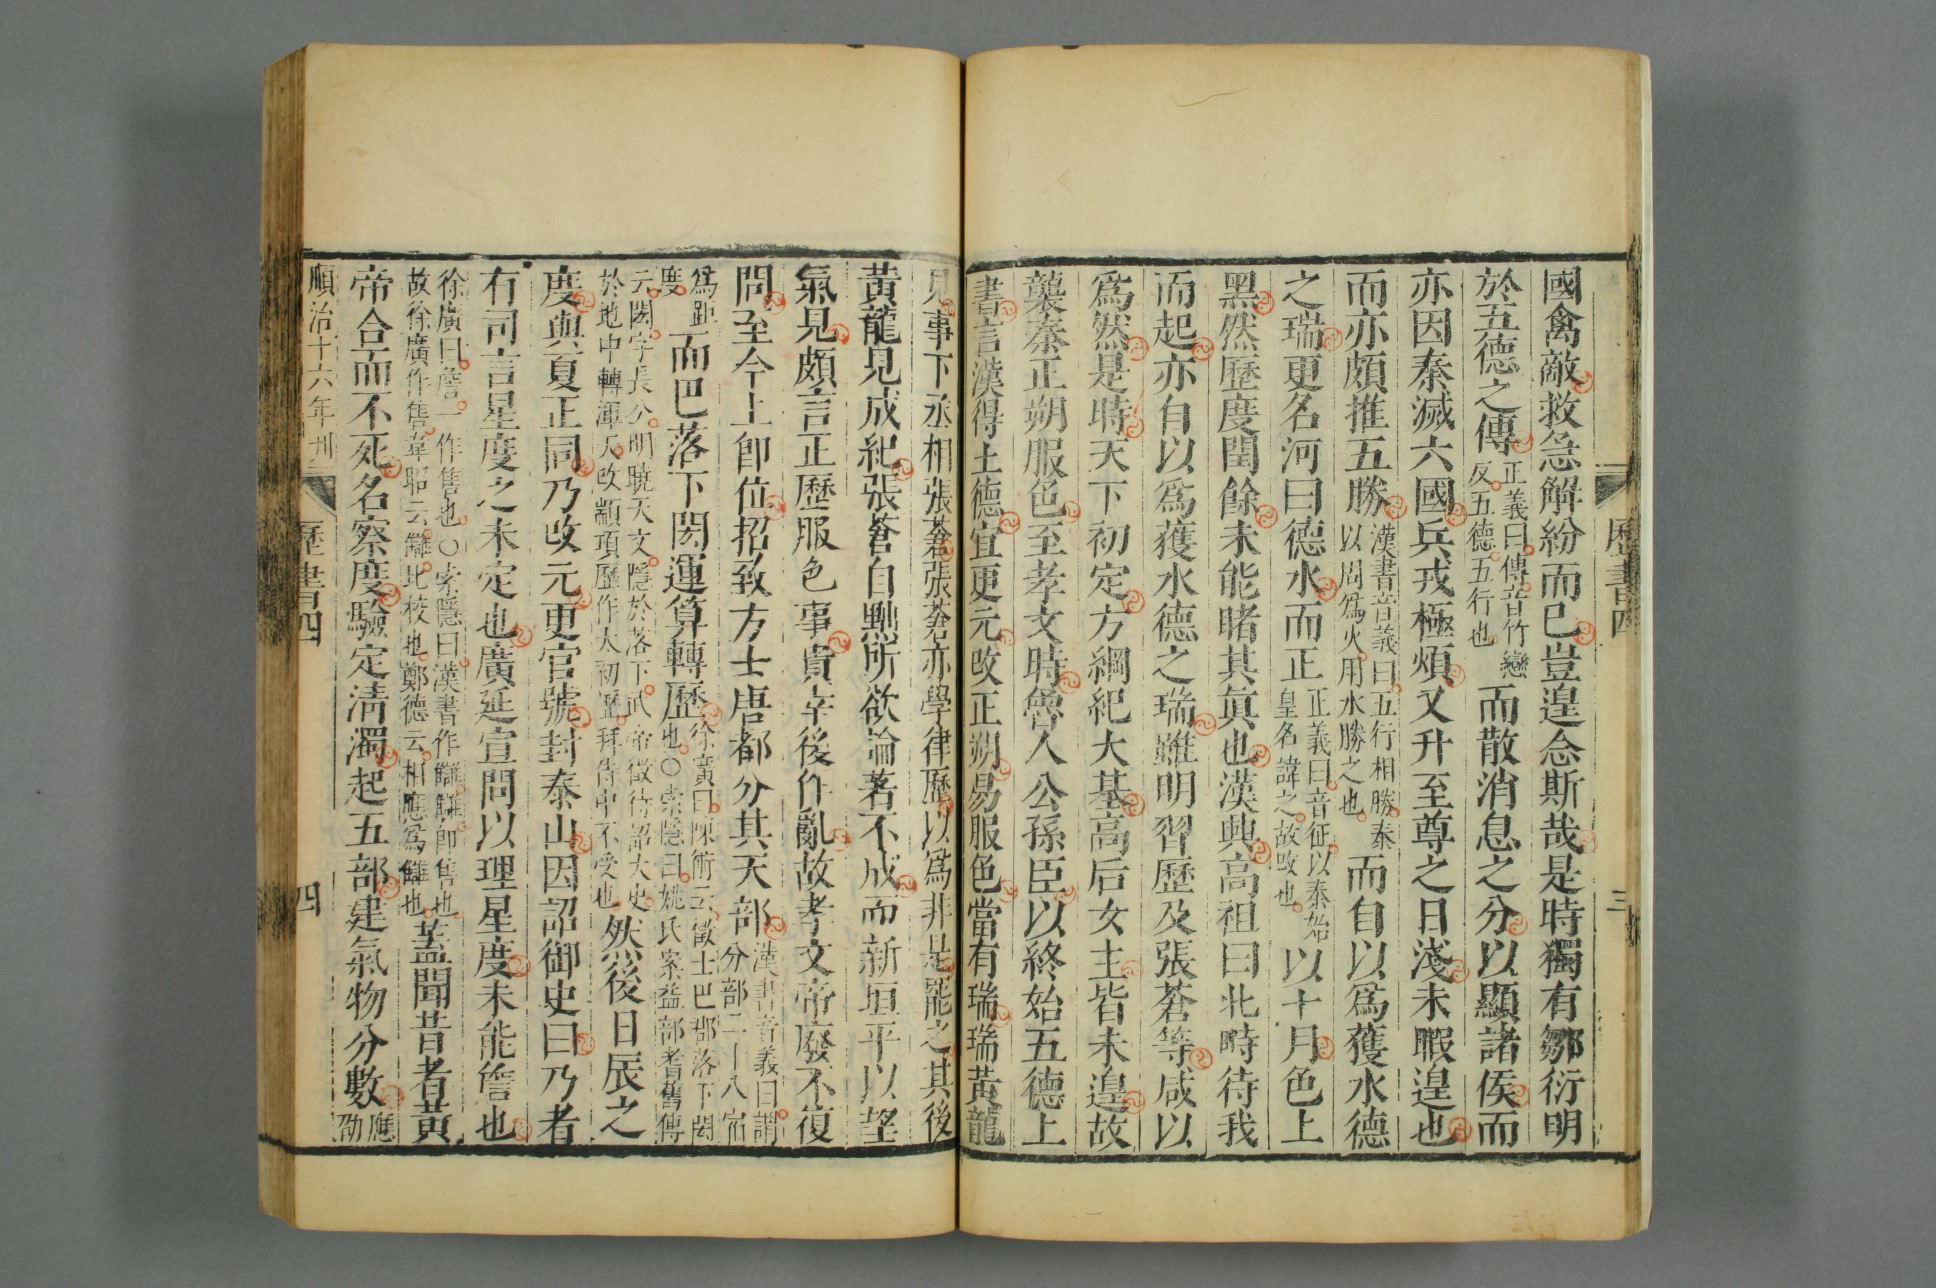 國禽敵救急解紛而已豈遑念斯哉是時獨有鄒衍明
於五德之傳正義曰傳音竹戀反五德五行也而散消息之分以顯諸侯而
亦因秦滅六國兵戎極煩又升至尊之日淺未暇遑也
而亦頗推五勝漢書音義曰五行相勝秦以周爲火用水勝之也而自以爲獲水德
之瑞更名河曰德水而正正義曰音征以秦始皇名諱之故改也以十月色上
黑然歷度閏餘未能睹其眞也漢興高祖曰北畤待我
而起亦自以爲獲水德之瑞雖明習歷及張蒼等咸以
爲然是時天下初定方綱紀大基高后女主皆未遑故
襲秦正朔服色至孝文時魯人公孫臣以終始五德上
書言漢得土德宜更元改正朔易服色當有瑞瑞黃龍
歷書四
三
見事下丞相張蒼張蒼亦學律歷以爲非是罷之其後
黃龍見成紀張蒼自黜所欲論著不成而新垣平以望
氣見頗言正歷服色事貴幸後作亂故孝文帝廢不復
問至今上卽位招致方士唐都分其天部漢書音義曰謂分部二十八宿
爲距度而巴落下閎運算轉歷徐廣曰陳術云徵士巴郡落下閎也○索隱曰姚氏案益部耆舊傳
元閎字長公明曉天文隱於落下武帝徵待詔大史於地中轉渾天改顓頊歷作太初歷拜侍中不受也然後日辰之
度與夏正同乃改元更官號封泰山因詔御史曰乃者
有司言星度之未定也廣延宣問以理星度未能詹也
徐廣曰詹一作售也○索隱曰漢書作讎讎卽售也故徐廣作售韋昭云讎比校也鄭德云相應爲讎也蓋聞昔者黃
帝合而不死名察度驗定淸濁起五部建氣物分數應劭
順治十六年刊
歷書四
四